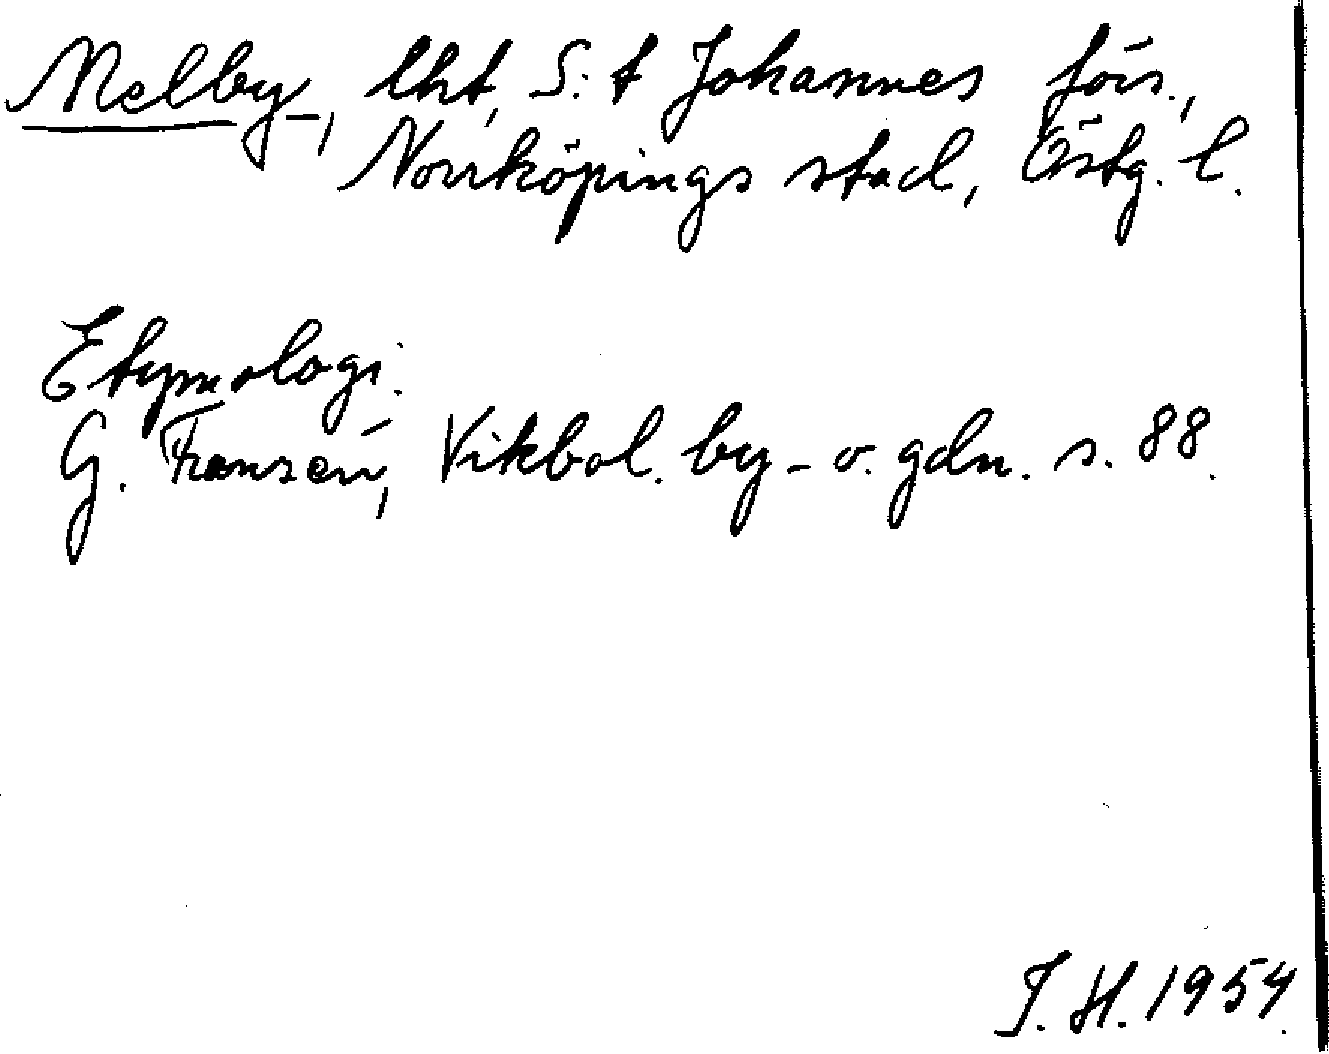 Melby, lht, S:t Johannes förs.,
Norrköpings stad, Östg. l.
Etymologi.
G. Franzén, Vikbol. by- o. gdn. s. 88.
J. H. 1954.